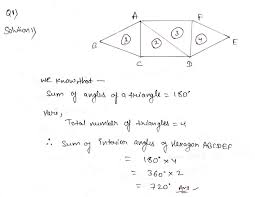 Q1)
Solution:)
A
F
B
E
C
D
1
2
3
4
We know that —
Sum of angles of a triangle = 180°
Here,
Total number of triangles = 4
∴ Sum of Interior angles of Hexagon ABCDEF
= 180° × 4
= 360° × 2
= 720° Ans